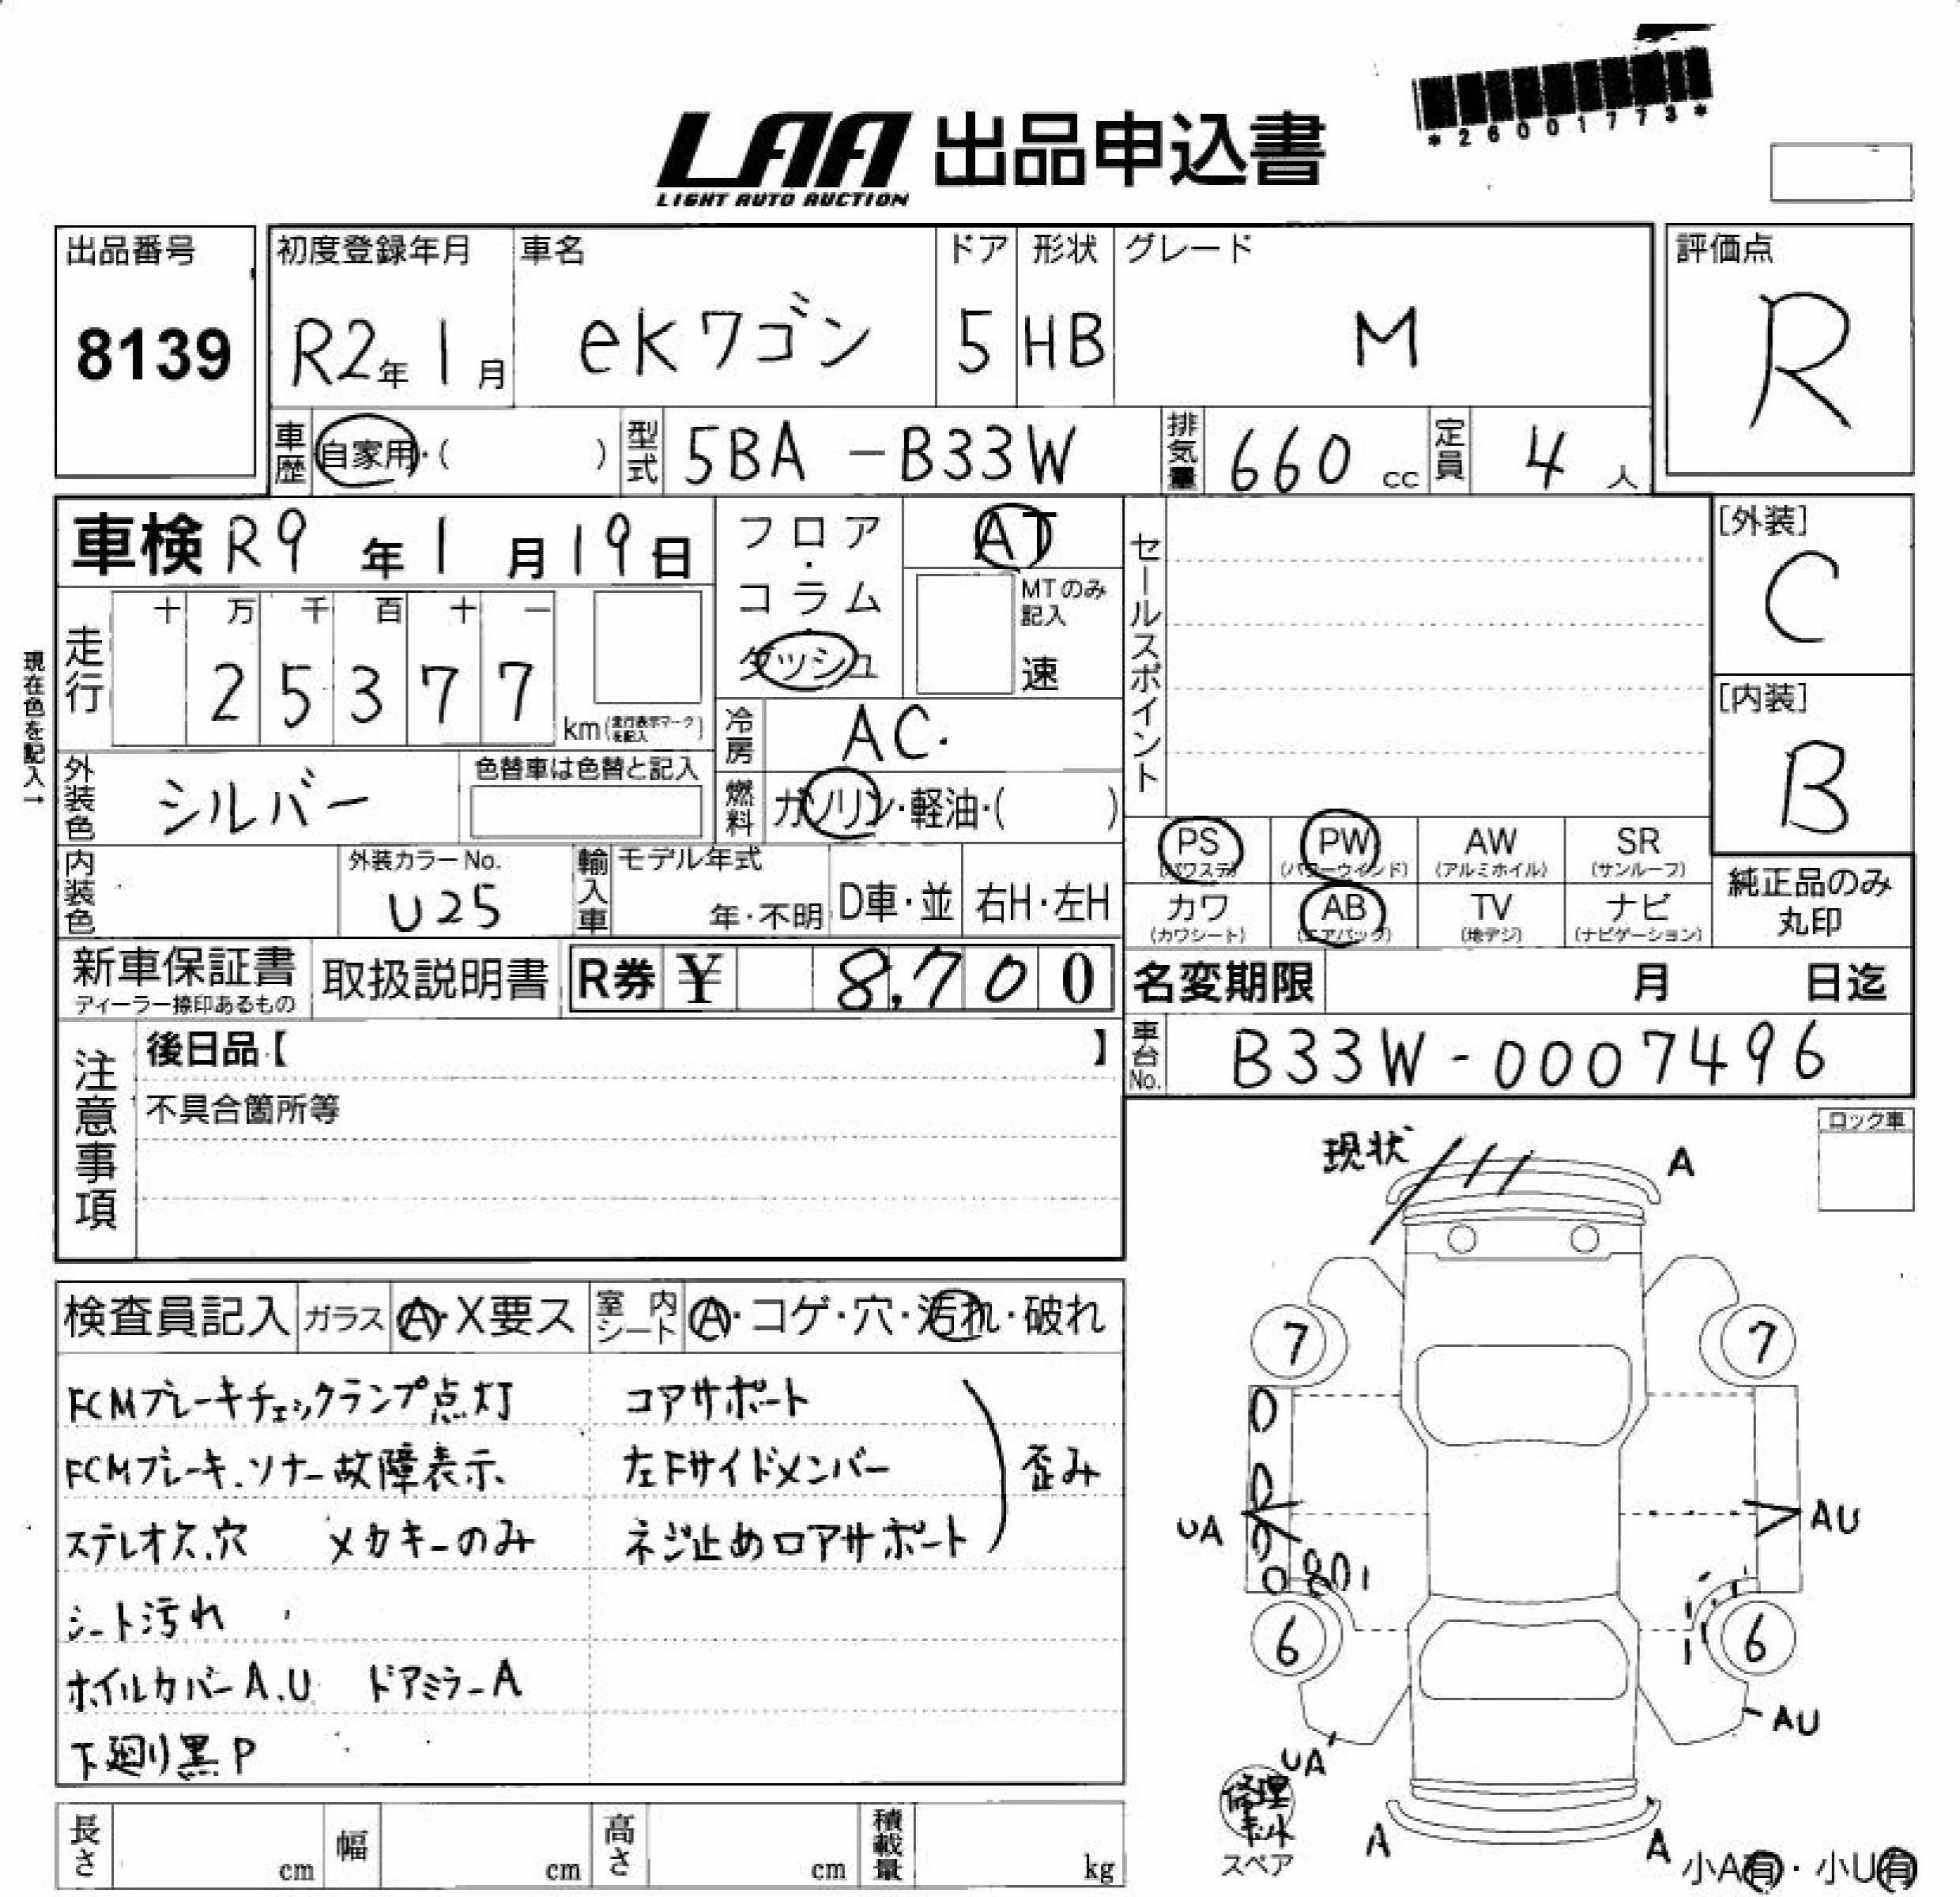 *26001773*
LAA 出品申込書
LIGHT AUTO AUCTION
出品番号
8139
初度登録年月
R2年 1月
車名
eKワゴン
ドア
5
形状
HB
グレード
M
評価点
R
車歴
自家用・( )
型式
5BA - B33W
排気量
660 cc
定員
4 人
車検 R9年 1月 19日
フロア・コラム・ダッシュ
AT
MTのみ記入
速
セールスポイント
[外装]
C
[内装]
B
現在色を記入→
走行
十 万 千 百 十 一
2 5 3 7 7
km (走行表示マークを記入)
冷房
AC.
外装色
シルバー
色替車は色替と記入
燃料
ガソリン・軽油・( )
内装色
外装カラーNo.
U25
輸入車
モデル年式
年・不明
D車・並
右H・左H
PS (パワステ)
PW (パワーウインド)
AW (アルミホイル)
SR (サンルーフ)
カワ (カワシート)
AB (エアバッグ)
TV (地デジ)
ナビ (ナビゲーション)
純正品のみ
丸印
新車保証書
ディーラー捺印あるもの
取扱説明書
R券 ¥ 8,700
名変期限 月 日迄
車台No.
B33W-0007496
注意事項
後日品【 】
不具合箇所等
ロック車
現状
A
7
7
UA
AU
6
6
AU
UA
修理キット
スペア
A
A
小A有・小U有
検査員記入
ガラス
A・X要ス
室内シート
A・コゲ・穴・汚れ・破れ
FCMブレーキチェックランプ点灯
FCMブレーキ.ソナー故障表示
ステレオ欠.穴 メカキーのみ
シート汚れ
ホイルカバーA.U ドアミラーA
下廻り黒P
コアサポート
左Fサイドメンバー
ネジ止めロアサポート
歪み
長さ cm
幅 cm
高さ cm
積載量 kg